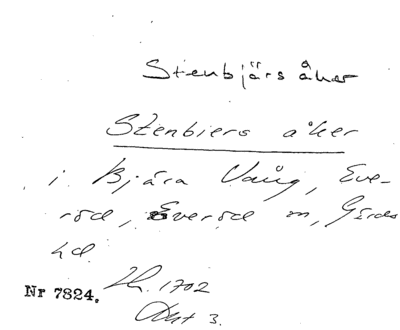 Stenbjärs åker
Stenbiers åker
i Bjära Vång, Eve-
röd, Everöds sn, Gärds
hd.
Nr 7824. Lh. 1702
Akt 3.